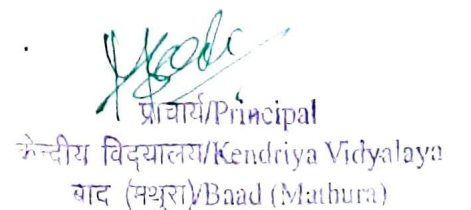 प्राचार्य/Principal
केन्द्रीय विद्यालय/Kendriya Vidyalaya
बाद (मथुरा)/Baad (Mathura)